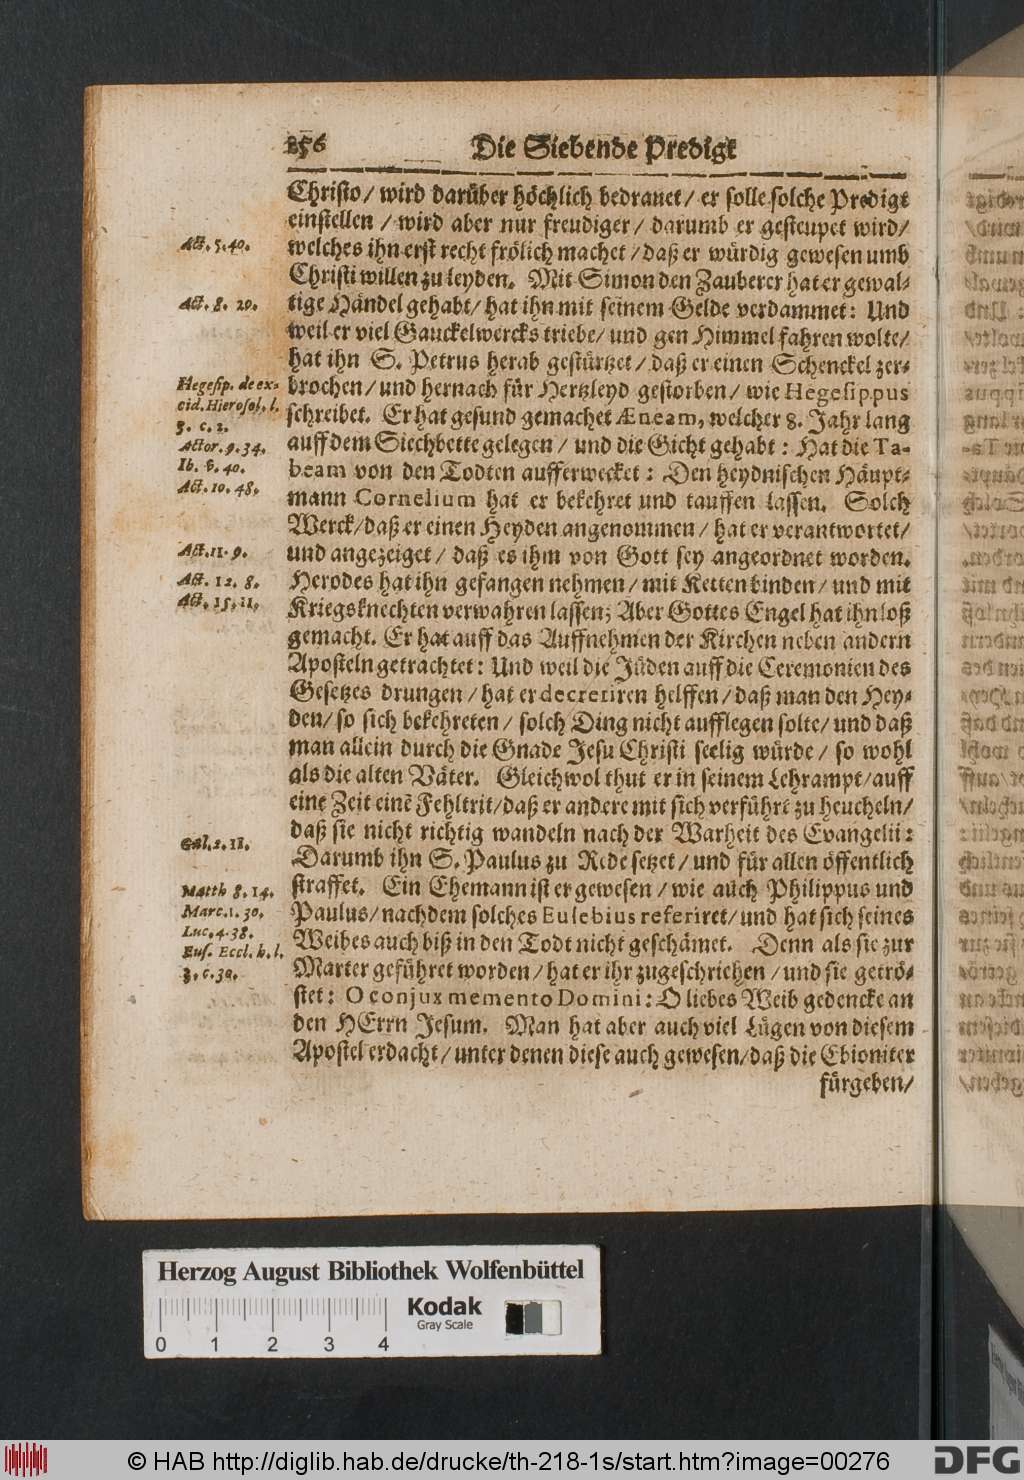 256 Die Siebende Predigt
Christo/ wird darüber höchlich bedrauet/ er solle solche Predigt
einstellen / wird aber nur freudiger / darumb er gesteupet wird/
Act. 5. 40.
welches ihn erst recht frölich machet / daß er würdig gewesen umb
Christi willen zu leyden. Mit Simon den Zauberer hat er gewal-
Act. 8. 20.
tige Händel gehabt/ hat ihn mit seinem Gelde verdammet: Und
weil er viel Gauckelwercks triebe/ und gen Himmel fahren wolte/
hat ihn S. Petrus herab gestürtzet / daß er einen Schenckel zer-
Hegesip. de ex-
brochen / und hernach für Hertzleyd gestorben / wie Hegesippus
cid. Hierosol. l.
schreibet. Er hat gesund gemachet Æneam, welcher 8. Jahr lang
3. c. 2.
Actor. 9. 34.
auff dem Siechbette gelegen / und die Gicht gehabt: Hat die Ta-
Ib. v. 40.
beam von den Todten aufferwecket: Den heydnischen Häupt-
Act. 10. 48.
mann Cornelium hat er bekehret und tauffen lassen. Solch
Werck/ daß er einen Heyden angenommen / hat er verantwortet/
Act. 11. 9.
und angezeiget / daß es ihm von Gott sey angeordnet worden.
Act. 12. 8.
Herodes hat ihn gefangen nehmen / mit Ketten binden / und mit
Act. 15. 11.
Kriegsknechten verwahren lassen; Aber Gottes Engel hat ihn loß
gemacht. Er hat auff das Auffnehmen der Kirchen neben andern
Aposteln getrachtet: Und weil die Jüden auff die Ceremonien des
Gesetzes drungen / hat er decretiren helffen / daß man den Hey-
den/ so sich bekehreten / solch Ding nicht aufflegen solte/ und daß
man allein durch die Gnade Jesu Christi seelig würde / so wohl
als die alten Väter. Gleichwol thut er in seinem Lehrampt/ auff
eine Zeit einē Fehltrit/ daß er andere mit sich verführt zu heucheln/
daß sie nicht richtig wandeln nach der Warheit des Evangelii:
Gal. 2. 11.
Darumb ihn S. Paulus zu Rede setzet / und für allen öffentlich
Matth 8. 14.
straffet. Ein Ehemann ist er gewesen / wie auch Philippus und
Marc. 1. 30.
Paulus/ nachdem solches Eusebius referiret/ und hat sich seines
Luc. 4. 38.
Weibes auch biß in den Todt nicht geschämet. Denn als sie zur
Eus. Eccl. h. l.
3. c. 30.
Marter geführet worden / hat er ihr zugeschriehen / und sie getrö-
stet: O conjux memento Domini: O liebes Weib gedencke an
den HErrn Jesum. Man hat aber auch viel Lügen von diesem
Apostel erdacht / unter denen diese auch gewesen/ daß die Ebioniter
fürgeben/
Herzog August Bibliothek Wolfenbüttel
Kodak
Gray Scale
0 1 2 3 4
© HAB http://diglib.hab.de/drucke/th-218-1s/start.htm?image=00276
DFG